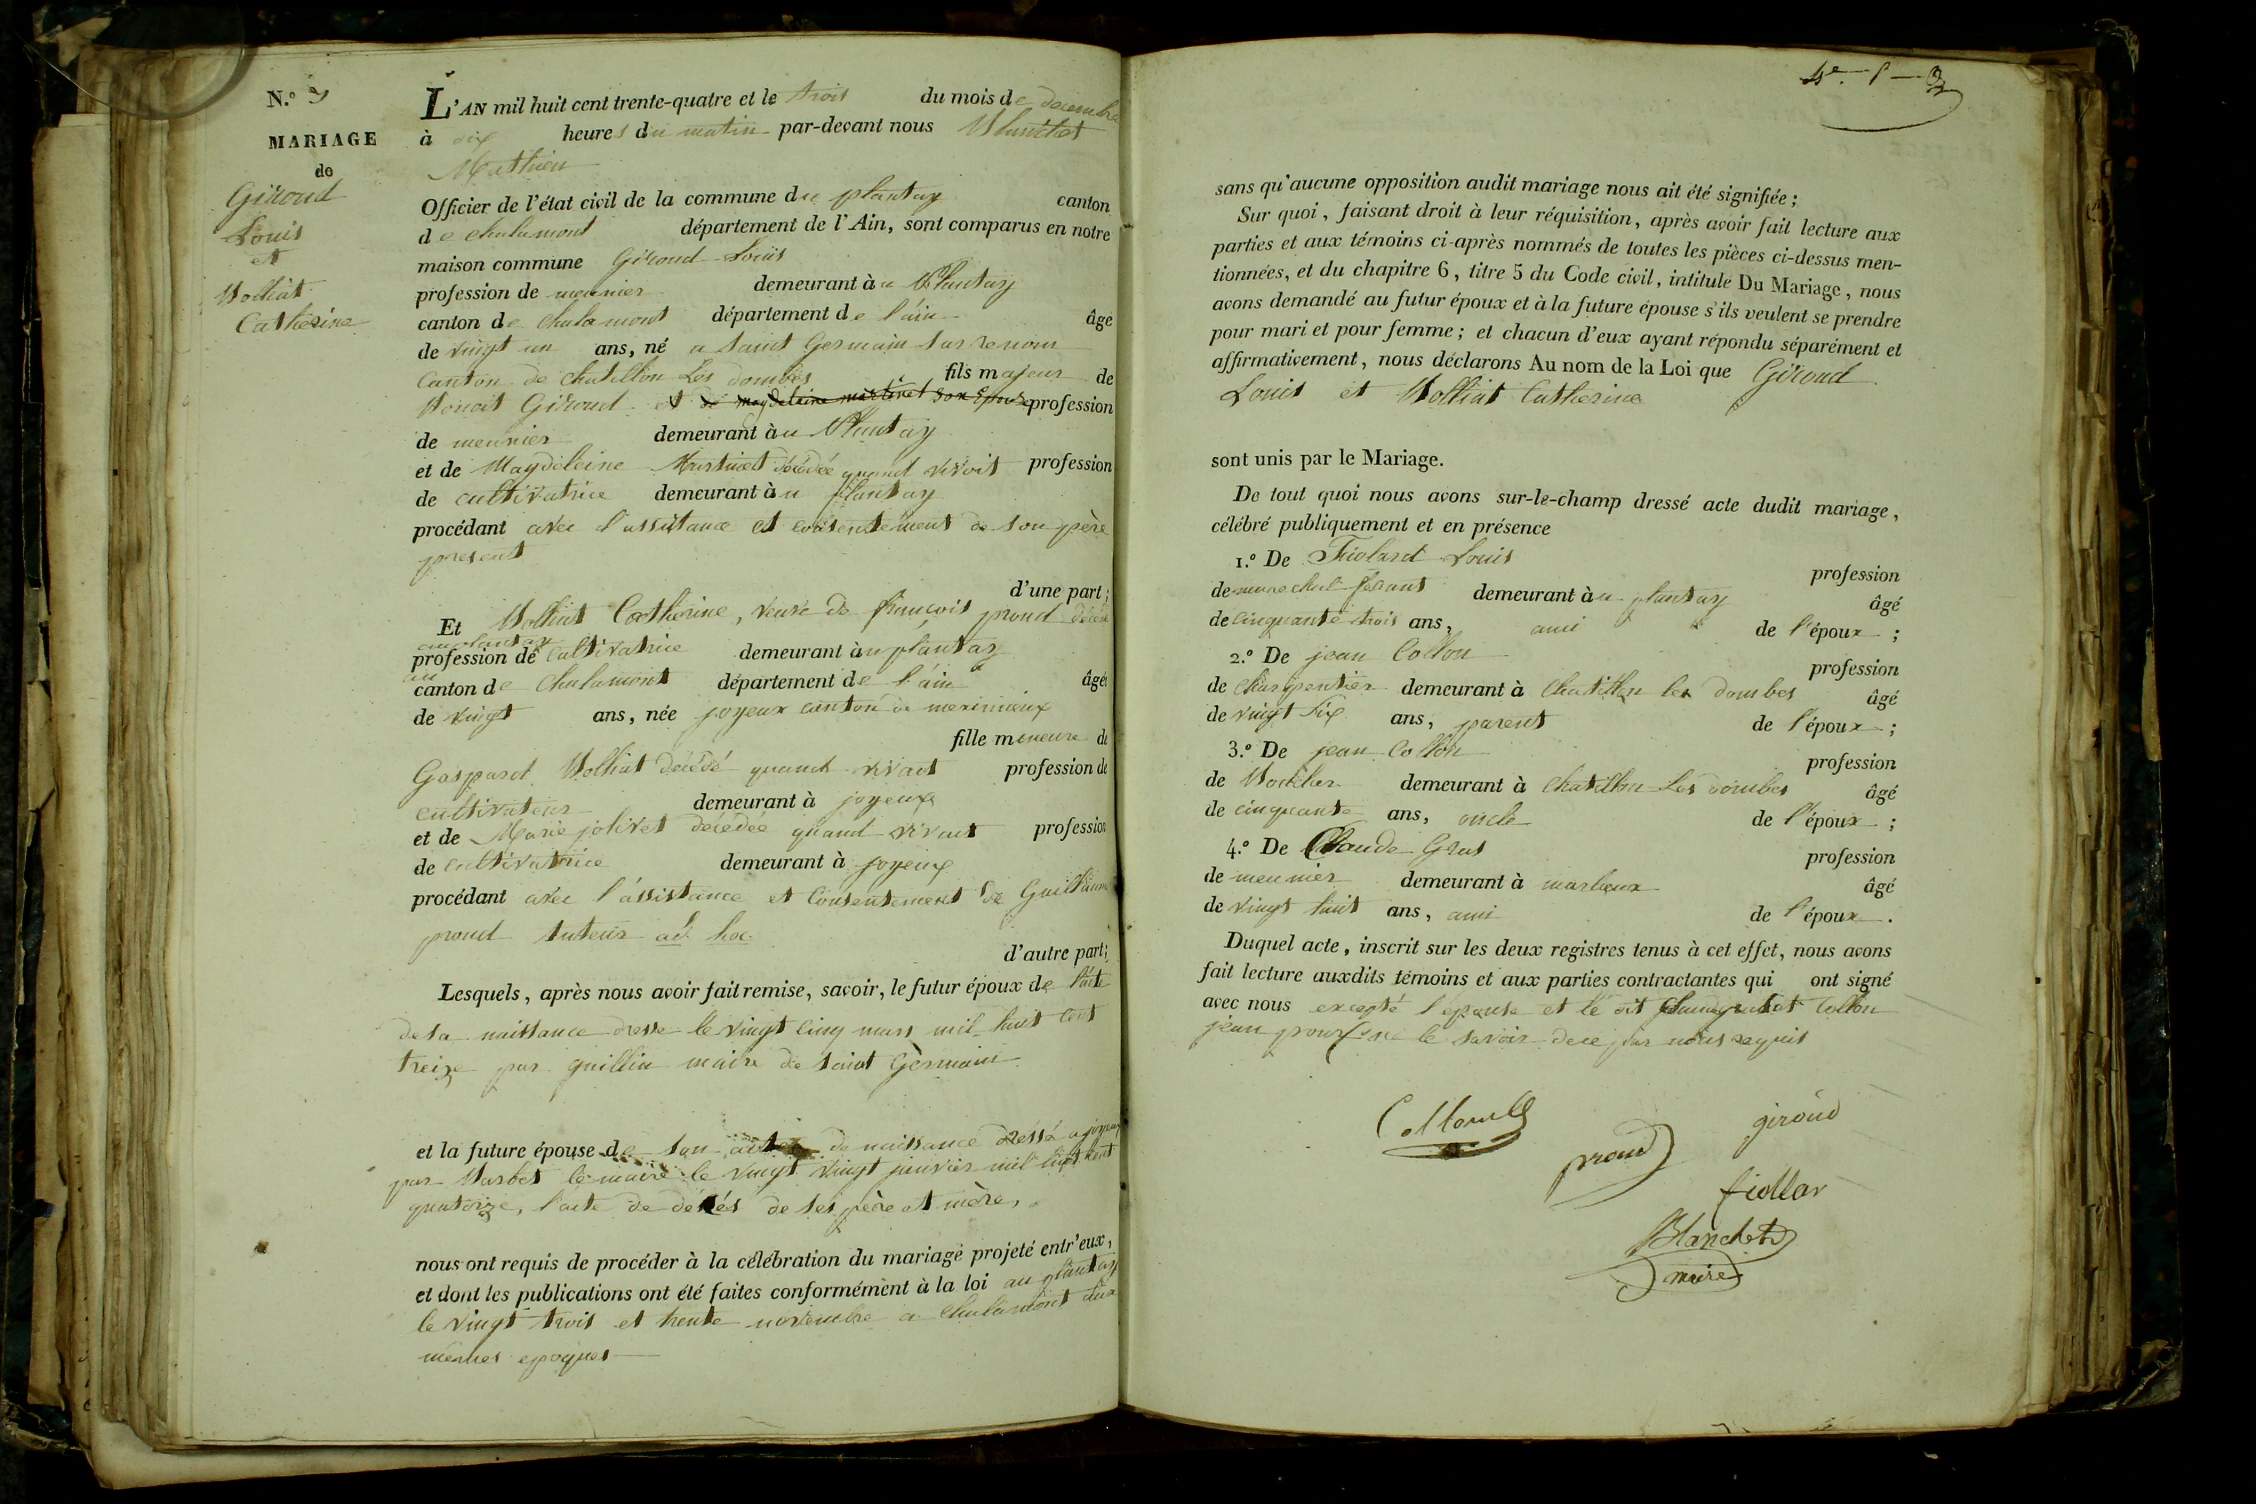 N.º 9
MARIAGE
de
Giroud
Louis
et
Bolliat
Catherine
L'AN mil huit cent trente-quatre et le trois du mois de decembre
à dix heures du matin par-devant nous Blanchet
Mathieu
Officier de l'état civil de la commune du plantay canton
de chalamont département de l'Ain, sont comparus en notre
maison commune Giroud Louis
profession de meunier demeurant au Plantay
canton de chalamont département de l'ain âgé
de vingt un ans, né a saint Germain sur renom
Canton de chatillon Les dombes fils majeur de
Benoit Giroud et de magdelaine martinet son Epouse profession
de meunier demeurant au Plantay
et de Magdeleine Martinet décédée quand vivoit profession
de cultivatrice demeurant au plantay
procédant avec l'assistance et consentement de son père
present
d'une part;
Et Bolliat Catherine, veuve de françois proud décédé
au plantay
profession de cultivatrice demeurant au plantay
canton de chalamont département de l'ain âgée
de vingt ans, née joyeux canton de meximieux
fille mineure de
Gaspard Bolliat décédé quand vivait profession de
cultivateur demeurant à joyeux
et de Marie jolivet décédée quand vivait profession
de cultivatrice demeurant à joyeux
procédant avec l'assistance et Consentement de Guillaume
proud tuteur ad hoc
d'autre part;
Lesquels, après nous avoir fait remise, savoir, le futur époux de l'acte
de sa naissance dressé le vingt cinq mars mil huit cent
treize par guillin maire de saint Germain
et la future épouse de son acte de naissance dressé a joyeux
par Barbet le maire le vingt vingt janvier mil huit cent
quatorze, l'acte de décés de ses père et mère,
nous ont requis de procéder à la célébration du mariage projeté entr'eux,
et dont les publications ont été faites conformément à la loi au plantay
le vingt trois et trente novembre a chalamont aux
mêmes epoques
sans qu'aucune opposition audit mariage nous ait été signifiée;
Sur quoi, faisant droit à leur réquisition, après avoir fait lecture aux
parties et aux témoins ci-après nommés de toutes les pièces ci-dessus men-
tionnées, et du chapitre 6, titre 5 du Code civil, intitulé Du Mariage, nous
avons demandé au futur époux et à la future épouse s'ils veulent se prendre
pour mari et pour femme; et chacun d'eux ayant répondu séparément et
affirmativement, nous déclarons Au nom de la Loi que Giroud
Louis et Bolliat Catherine
sont unis par le Mariage.
De tout quoi nous avons sur-le-champ dressé acte dudit mariage,
célébré publiquement et en présence
1.º De Fiolard Louis profession
de marechal ferant demeurant au plantay âgé
de cinquante trois ans, ami de l'époux;
2.º De jean Collon profession
de charpentier demeurant à Chatillon les dombes âgé
de vingt six ans, parent de l'époux;
3.º De jean Collon profession
de demeurant à Chatillon Les dombes âgé
de cinquante ans, oncle de l'époux;
4.º De Claude Gras profession
de meunier demeurant à marlieux âgé
de vingt huit ans, ami de l'époux.
Duquel acte, inscrit sur les deux registres tenus à cet effet, nous avons
fait lecture auxdits témoins et aux parties contractantes qui ont signé
avec nous excepté l'épouse et le dit Collon
jean pour ne le savoir de ce par nous requis
Collon
proud
giroud
fiollar
Blanchet
maire